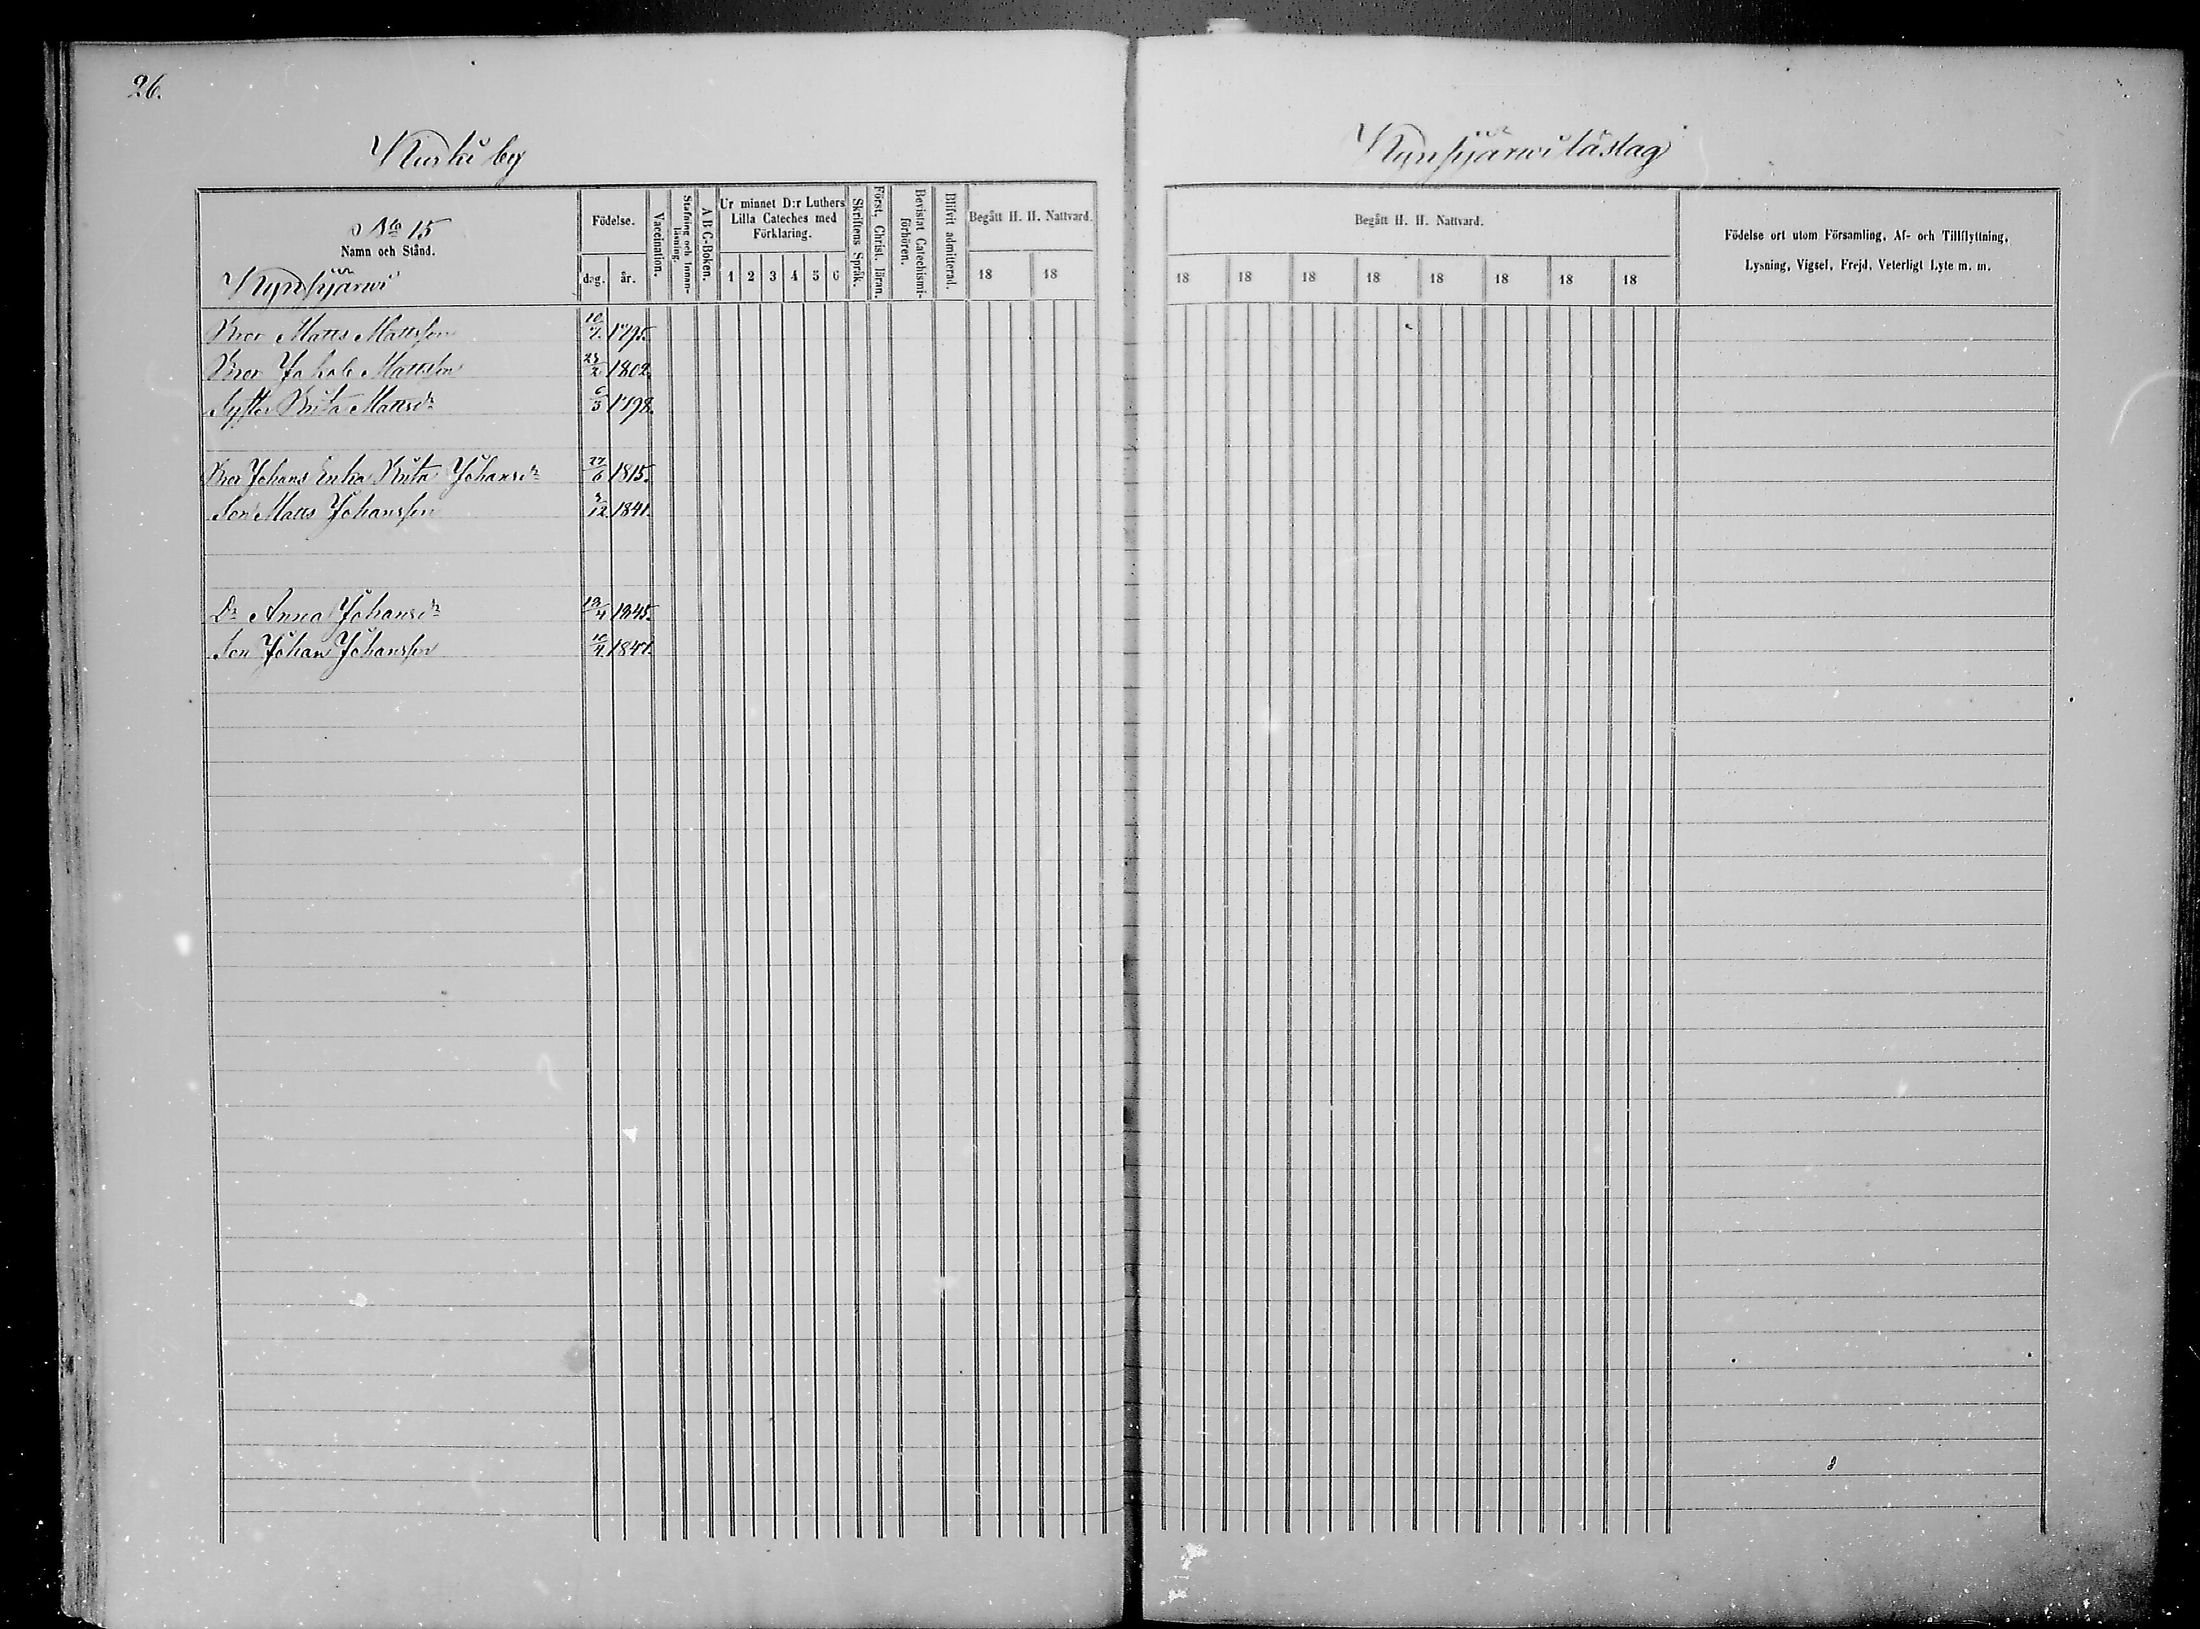 26.
Kurki by
Kynsijärwi läslag
No 15
Namn och Stånd.
Kynsijärwi
Födelse.
dag. år.
Vaccination.
Stafning och Innan-läsning.
A B C-Boken.
Ur minnet D:r Luthers Lilla Cateches med Förklaring.
1 2 3 4 5 6
Skriftens Språk.
Först. Christ. läran.
Bevistat Catechismi-förhören.
Blifvit admitterad.
Begått H. H. Nattvard.
18 18
Begått H. H. Nattvard.
18 18 18 18 18 18 18 18
Födelse ort utom Församling, Af- och Tillflyttning,
Lysning, Vigsel, Frejd, Veterligt Lyte m. m.
Bror Matts Mattsson 10/7 1795.
Bror Jakob Mattsson 1802.
Syster Brita Mattsdr 6/3 1798.
Bror Johans Enka Brita Johansdr 27/6 1815.
Son Matts Johansson /12 1841.
Dr Anna Johansdr 13/4 1845.
Son Johan Johansson 10/4 1847.